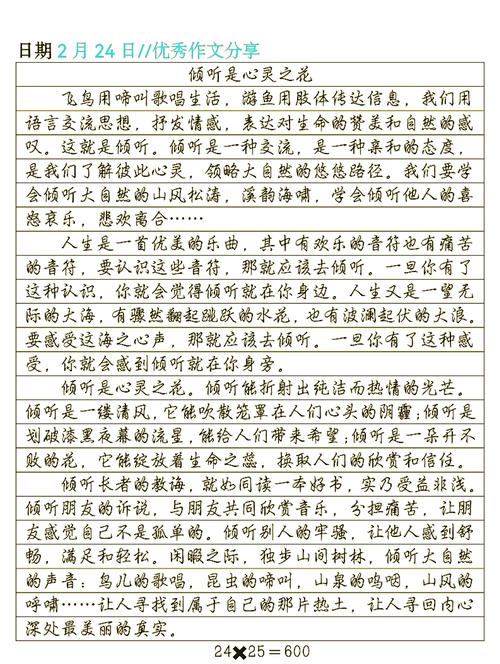 日期2月24日//优秀作文分享
倾听是心灵之花
飞鸟用啼叫歌唱生活，游鱼用肢体传达信息，我们用
语言交流思想，抒发情感，表达对生命的赞美和自然的感
叹。这就是倾听。倾听是一种交流，是一种亲和的态度，
是我们了解彼此心灵，领略大自然的悠悠路径。我们要学
会倾听大自然的山风松涛，溪韵海啸，学会倾听他人的喜
怒哀乐，悲欢离合……
人生是一首优美的乐曲，其中有欢乐的音符也有痛苦
的音符，要认识这些音符，那就应该去倾听。一旦你有了
这种认识，你就会觉得倾听就在你身边。人生又是一望无
际的大海，有骤然翻起跳跃的水花，也有波澜起伏的大浪。
要感受这海之心声，那就应该去倾听。一旦你有了这种感
受，你就会感到倾听就在你身旁。
倾听是心灵之花。倾听能折射出纯洁而热情的光芒。
倾听是一缕清风，它能吹散笼罩在人们心头的阴霾；倾听是
划破漆黑夜幕的流星，能给人们带来希望；倾听是一朵开不
败的花，它能绽放着生命之蕊，换取人们的欣赏和信任。
倾听长者的教诲，就如同读一本好书，实乃受益非浅。
倾听朋友的诉说，与朋友共同欣赏音乐，分担痛苦，让朋
友感觉自己不是孤单的。倾听别人的牢骚，让他人感到舒
畅，满足和轻松。闲暇之际，独步山间树林，倾听大自然
的声音：鸟儿的歌唱，昆虫的啼叫，山泉的呜咽，山风的
呼啸……让人寻找到属于自己的那片热土，让人寻回内心
深处最美丽的真实。
24✖25=600